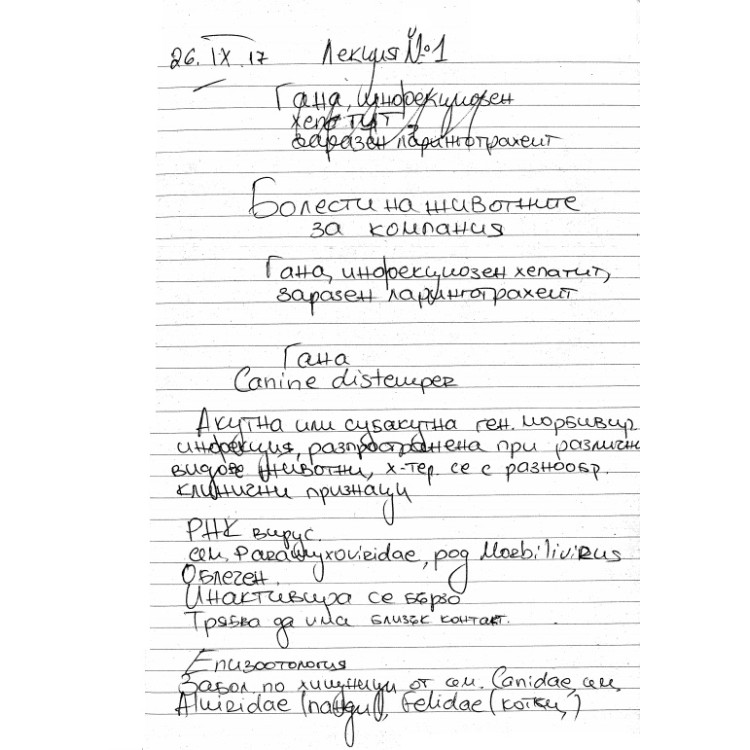 26.IX.17 Лекция №1
Гана, инфекциозен
хепатит
заразен ларинготрахеит
Болести на животните
за компания
Гана, инфекциозен хепатит,
заразен ларинготрахеит
Гана
Canine distemper
Акутна или субакутна ген. морбивир.
инфекция, разпространена при различн
видове животни, х-тер. се с разнообр.
клинични признаци
РНК вирус.
сем. Paramyxoviridae, род Morbilivirus
Облечен.
Инактивира се бързо
Трябва да има близък контакт.
Епизоотология
Забол. по хищници от сем. Canidae, сем.
Ailuridae (панди), Felidae (котки,)